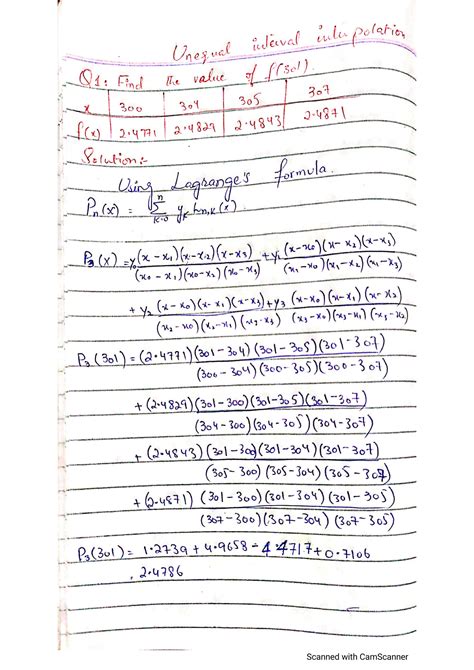 Unequal interval interpolation
Q1: Find the value of f(301).
x 300 304 305 307
f(x) 2.4771 2.4829 2.4843 2.4871
Solution:-
Using Lagrange's formula.
Pn(x) = Σ(k=0 to n) yk Ln,k(x)
P3(x) = y0 (x-x1)(x-x2)(x-x3) / (x0-x1)(x0-x2)(x0-x3) + y1 (x-x0)(x-x2)(x-x3) / (x1-x0)(x1-x2)(x1-x3)
+ y2 (x-x0)(x-x1)(x-x3) / (x2-x0)(x2-x1)(x2-x3) + y3 (x-x0)(x-x1)(x-x2) / (x3-x0)(x3-x1)(x3-x2)
P3(301) = (2.4771)(301-304)(301-305)(301-307)
(300-304)(300-305)(300-307)
+ (2.4829)(301-300)(301-305)(301-307)
(304-300)(304-305)(304-307)
+ (2.4843)(301-300)(301-304)(301-307)
(305-300)(305-304)(305-307)
+ (2.4871) (301-300)(301-304)(301-305)
(307-300)(307-304)(307-305)
P3(301) = 1.2739 + 4.9658 - 4.4717 + 0.7106
2.4786
Scanned with CamScanner